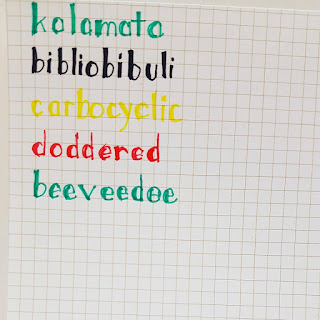 kalamata
bibliobibuli
carbocyclic
doddered
beeveedee